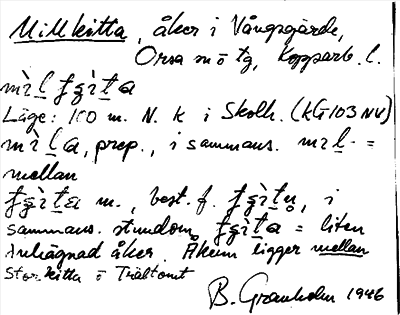 Millkitta, åker i Vångsgärde,
Orsa sn o tg, Kopparb. l.
Läge: 100 m. N. k i Skolh. (KG103NV)
mɪ̀l a, prep., i sammans. mɪl- =
mellan
m., best. f. i
sammans. stundom = liten
inhägnad åker. Åkern ligger mellan
Storkitta o Trältomt
B. Granholm 1946